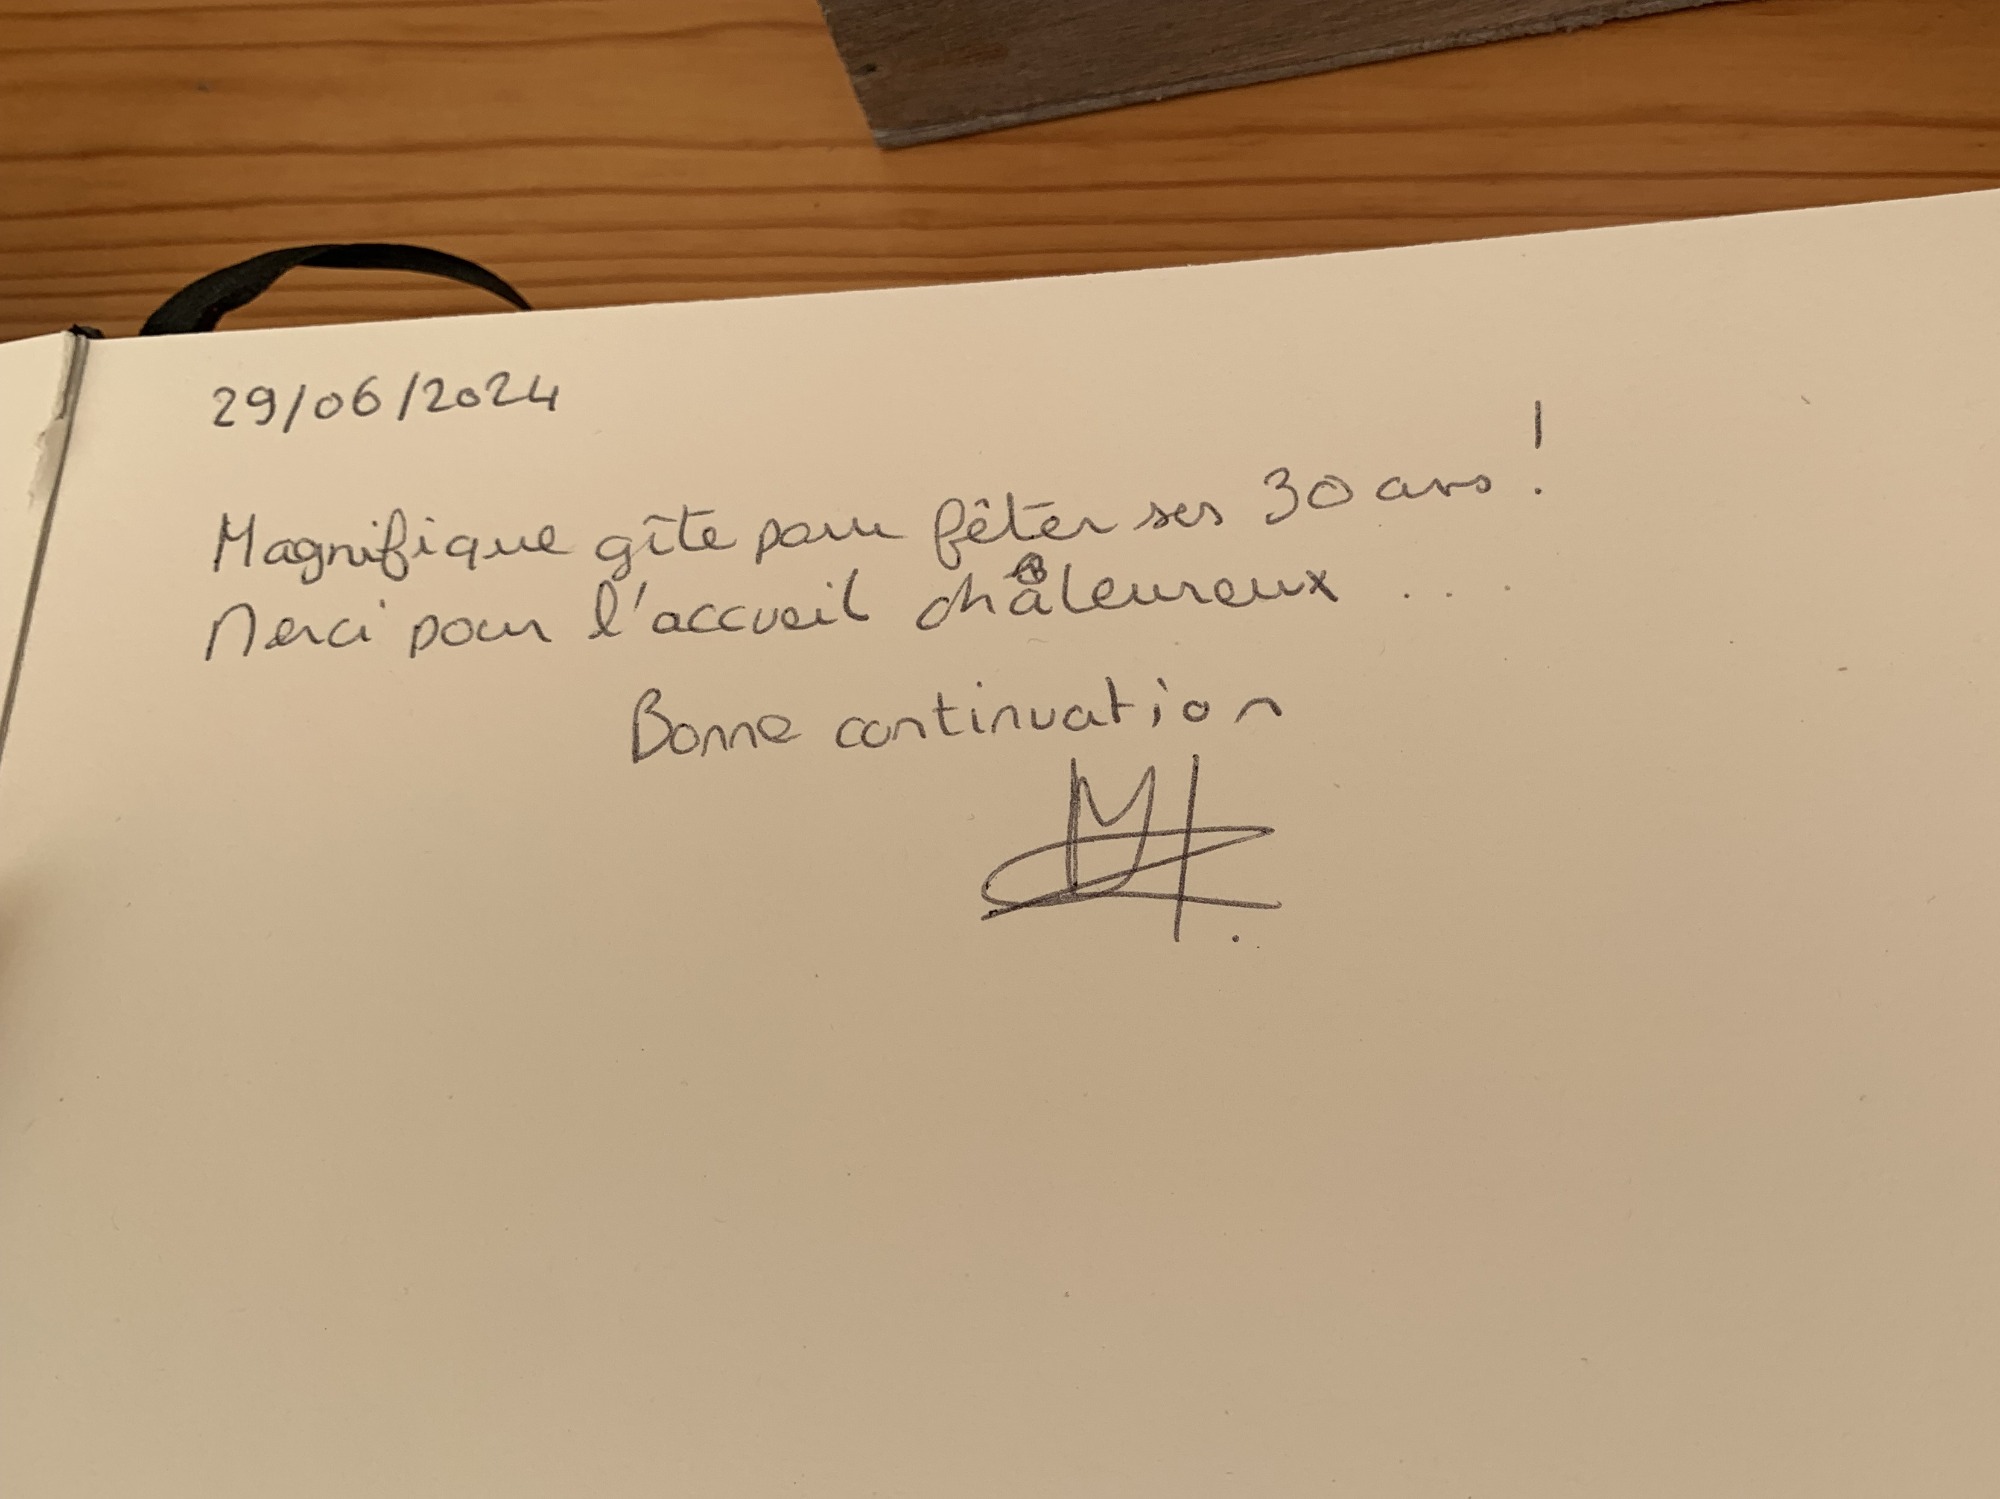 29/06/2024
Magnifique gîte pour fêter ses 30 ans !
Merci pour l'accueil chaleureux ...
Bonne continuation